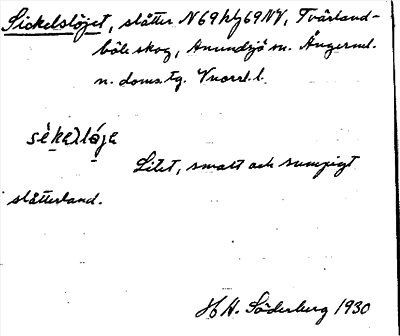 Sickelslöjet, slåtter N69Wg69NV, Tvärland-
böle skog, Anundsjö sn. Ångerml.
n. doms.tg. Vnorrl. l.
sèkəlslája
Litet, smalt och sumpigt
slåtterland.
H. A. Söderberg 1930